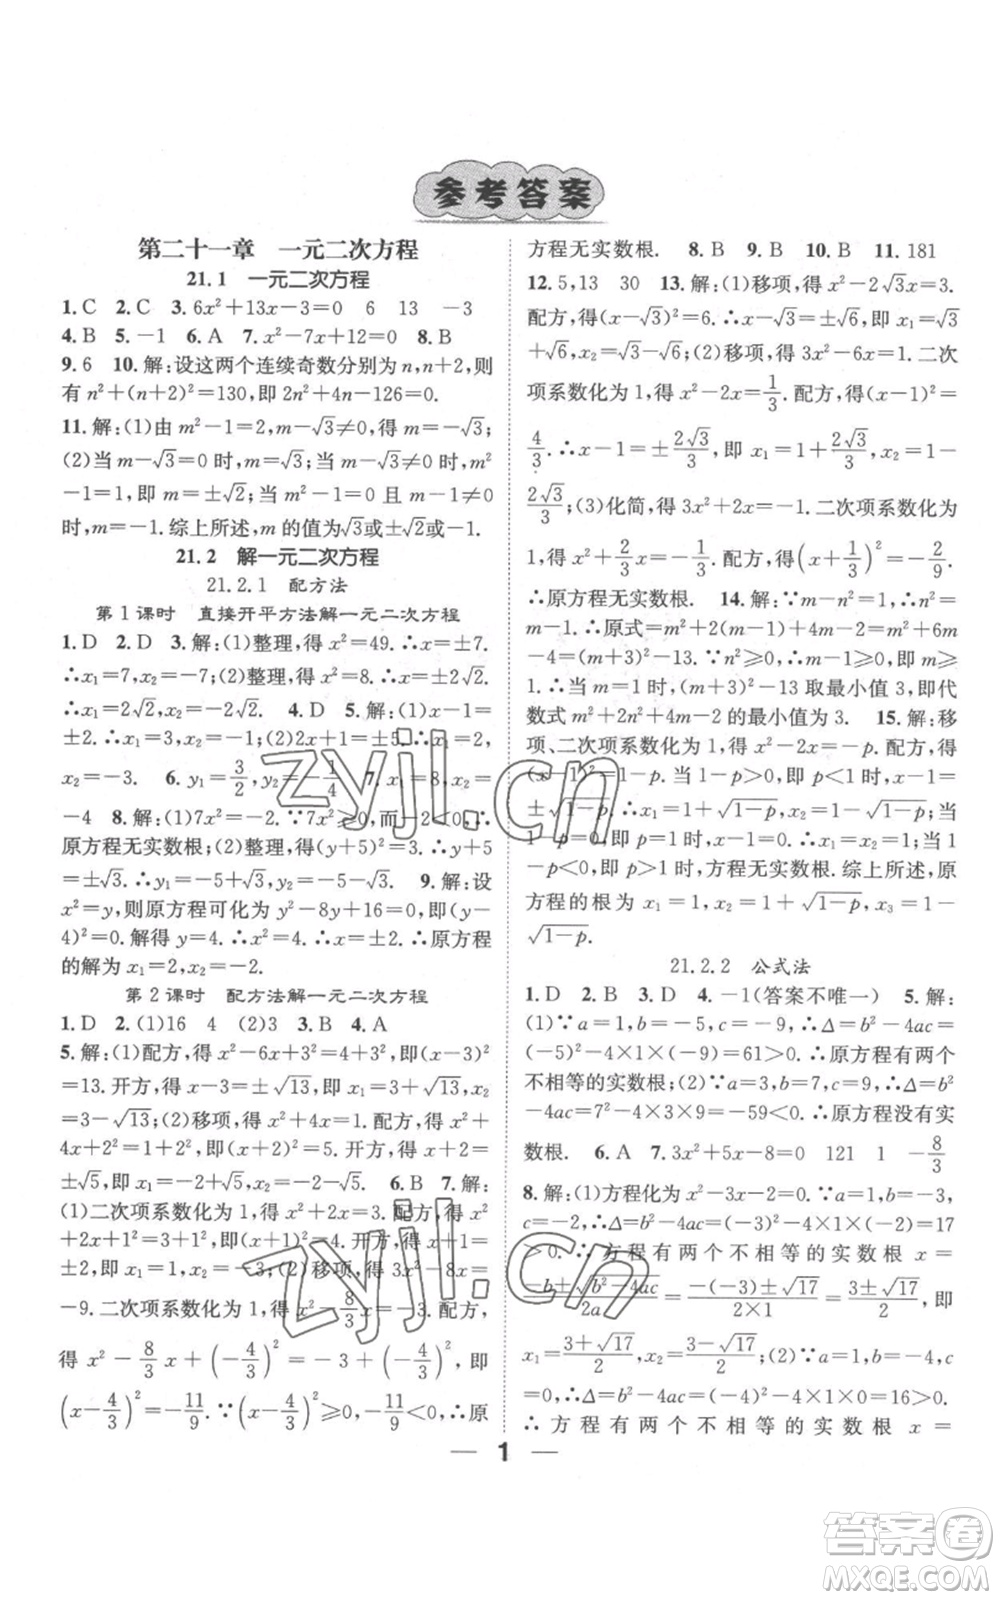 参考答案
第二十一章 一元二次方程
21.1 一元二次方程
1.C 2.C 3.6x²+13x-3=0 6 13 -3
4.B 5.-1 6.A 7.x²-7x+12=0 8.B
9.6 10.解:设这两个连续奇数分别为n,n+2,则
有n²+(n+2)²=130,即2n²+4n-126=0.
11.解:(1)由m²-1=2,且m-√3≠0,得m=-√3;
(2)当m-√3=0时,m=√3;当m-√3≠0时,m²
-1=1,即m=±√2;当m²-1=0且m-√3≠0
时,m=-1.综上所述,m的值为√3或±√2或-1.
21.2 解一元二次方程
21.2.1 配方法
第1课时 直接开平方法解一元二次方程
1.D 2.D 3.解:(1)整理,得x²=49.∴x=±7.
∴x₁=7,x₂=-7;(2)整理,得x²=8.∴x=±2√2.
∴x₁=2√2,x₂=-2√2. 4.D 5.解:(1)x-1=
±2.∴x₁=3,x₂=-1;(2)x+1=±2.∴x₁=1,
x₂=-3. 6.y₁=3/2,y₂=-1/4 7.x=8,x₂=
-4 8.解:(1)7x²=-2.∵7x²≥0,而-2<0,∴
原方程无实数根;(2)整理,得(x+5)²=3.∴x+5
=±√3.∴x₁=-5+√3,x₂=-5-√3. 9.解:设
x²=y,则原方程可化为y²-8y+16=0,即(y-
4)²=0.解得y=4.∴x²=4.∴x=±2.∴原方程
的解为x₁=2,x₂=-2.
第2课时 配方法解一元二次方程
1.D 2.(1)16 4 (2)3 3.B 4.A
5.解:(1)配方,得x²-6x+3²=4+3²,即(x-3)²
=13.开方,得x-3=±√13,即x₁=3+√13,x₂
=3-√13;(2)移项,得x²+4x=1.配方,得x²+
4x+2²=1+2²,即(x+2)²=5.开方,得x+2=
±√5,即x₁=-2+√5,x₂=-2-√5. 6.B 7.解:
(1)二次项系数化为1,得x²+2x=3.配方,得x²+
2x+1²=3+1²,即(x+1)²=4.开方,得x+1=
±2,即x₁=1,x₂=-3;(2)移项,得3x²-8x=
-9.二次项系数化为1,得x²-8/3x=-3.配方,
得x²-8/3x+(-4/3)²=-3+(-4/3)²,即
(x-4/3)²=-11/9.∵(x-4/3)²≥0,-11/9<0,∴原
方程无实数根. 8.B 9.B 10.B 11.181
12.5,13 30 13.解:(1)移项,得x²-2√3x=3.
配方,得(x-√3)²=6.∴x-√3=±√6,即x₁=√3
+√6,x₂=√3-√6;(2)移项,得3x²-6x=1.二次
项系数化为1,得x²-2x=1/3.配方,得(x-1)²=
4/3.∴x-1=±2√3/3,即x₁=1+2√3/3,x₂=1-
2√3/3;(3)化简,得3x²+2x=-1.二次项系数化为
1,得x²+2/3x=-1/3.配方,得(x+1/3)²=-2/9.
∴原方程无实数根. 14.解:∵m-n²=1,∴n²=
m-1.∴原式=m²+2(m-1)+4m-2=m²+6m
-4=(m+3)²-13.∵n²≥0,∴m-1≥0.∴m≥
1.∴当m=1时,(m+3)²-13取最小值3,即代
数式m²+2n²+4m-2的最小值为3. 15.解:移
项、二次项系数化为1,得x²-2x=-p.配方,得
(x-1)²=1-p.当1-p>0,即p<1时,x-1=
±√1-p.∴x₁=1+√1-p,x₂=1-√1-p;当
1-p=0,即p=1时,x₁=x₂=1;当1-p
<0,即p>1时,方程无实数根.综上所述,原
方程的根为x₁=1,x₂=1+√1-p,x₃=1-
√1-p.
21.2.2 公式法
1.D 2.B 3.D 4.-1(答案不唯一) 5.解:
(1)∵a=1,b=-5,c=-9,∴Δ=b²-4ac=
(-5)²-4×1×(-9)=61>0.∴原方程有两个
不相等的实数根;(2)∵a=3,b=7,c=9,∴Δ=b²
-4ac=7²-4×3×9=-59<0.∴原方程没有实
数根. 6.A 7.3x²+5x-8=0 121 1 -8/3
8.解:(1)方程化为x²-3x-2=0.∵a=1,b=-3,
c=-2,∴Δ=b²-4ac=(-3)²-4×1×(-2)=17
>0.∴方程有两个不相等的实数根x=
-b±√b²-4ac/2a=-(-3)±√17/2×1=3±√17/2,即
x₁=3+√17/2,x₂=3-√17/2;(2)∵a=1,b=-4,c
=0,∴Δ=b²-4ac=(-4)²-4×1×0=16>0.
∴方程有两个不相等的实数根x=
1
zyjl.cn
zyjl.cn
答案卷
MXQE.COM